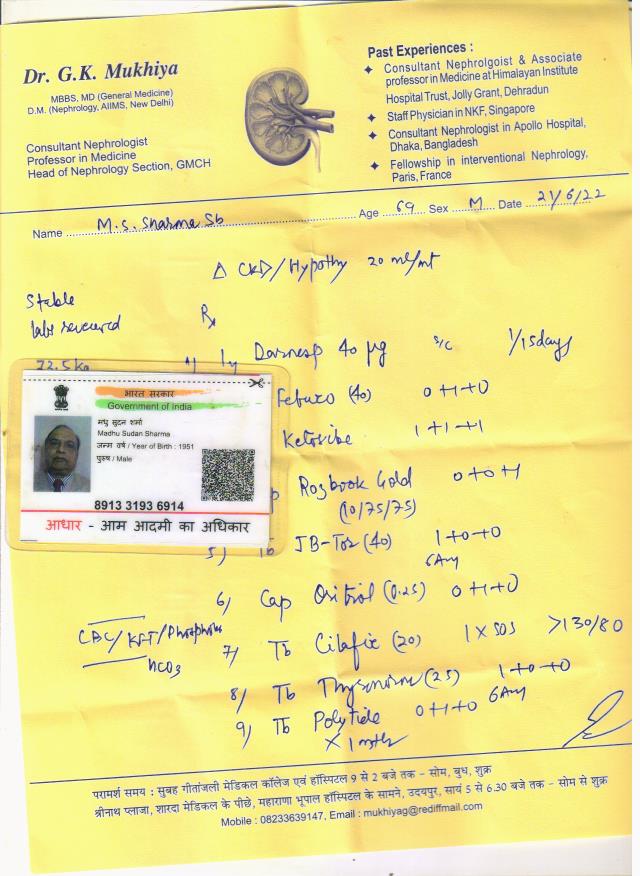 Dr. G.K. Mukhiya
MBBS, MD (General Medicine)
D.M. (Nephrology, AIIMS, New Delhi)
Consultant Nephrologist
Professor in Medicine
Head of Nephrology Section, GMCH
Past Experiences :
Consultant Nephrolgoist & Associate
professor in Medicine at Himalayan Institute
Hospital Trust, Jolly Grant, Dehradun
Staff Physician in NKF, Singapore
Consultant Nephrologist in Apollo Hospital,
Dhaka, Bangladesh
Fellowship in interventional Nephrology,
Paris, France
Name M.S. Sharma Sb Age 69 Sex M Date 21/6/22
Δ CKD/Hypothy 20 ml/mt
Stable
labs reviewed
Rx
72.5 kg
Darnesp 40 µg s/c 1/15 days
Febuxo (40) 0+1+0
1+1+1
Gold 0+0+1
(10/75/75)
भारत सरकार
Government of India
मधु सुदन शर्मा
Madhu Sudan Sharma
जन्म वर्ष / Year of Birth : 1951
पुरुष / Male
8913 3193 6914
आधार - आम आदमी का अधिकार
5) Tb (40) 1+0+0
6 Am
6) Cap (0.25) 0+1+0
CBC/KFT/Phosphorus
HCO3
7) Tb (20) 1 x SOS >130/80
8) Tb (25) 1+0+0
6 Am
9) Tb 0+1+0
x 1 mth
परामर्श समय : सुबह गीतांजली मेडिकल कॉलेज एवं हॉस्पिटल 9 से 2 बजे तक – सोम, बुध, शुक्र
श्रीनाथ प्लाजा, शारदा मेडिकल के पीछे, महाराणा भूपाल हॉस्पिटल के सामने, उदयपुर, सायं 5 से 6.30 बजे तक – सोम से शुक्र
Mobile : 08233639147, Email : mukhiyag@rediffmail.com